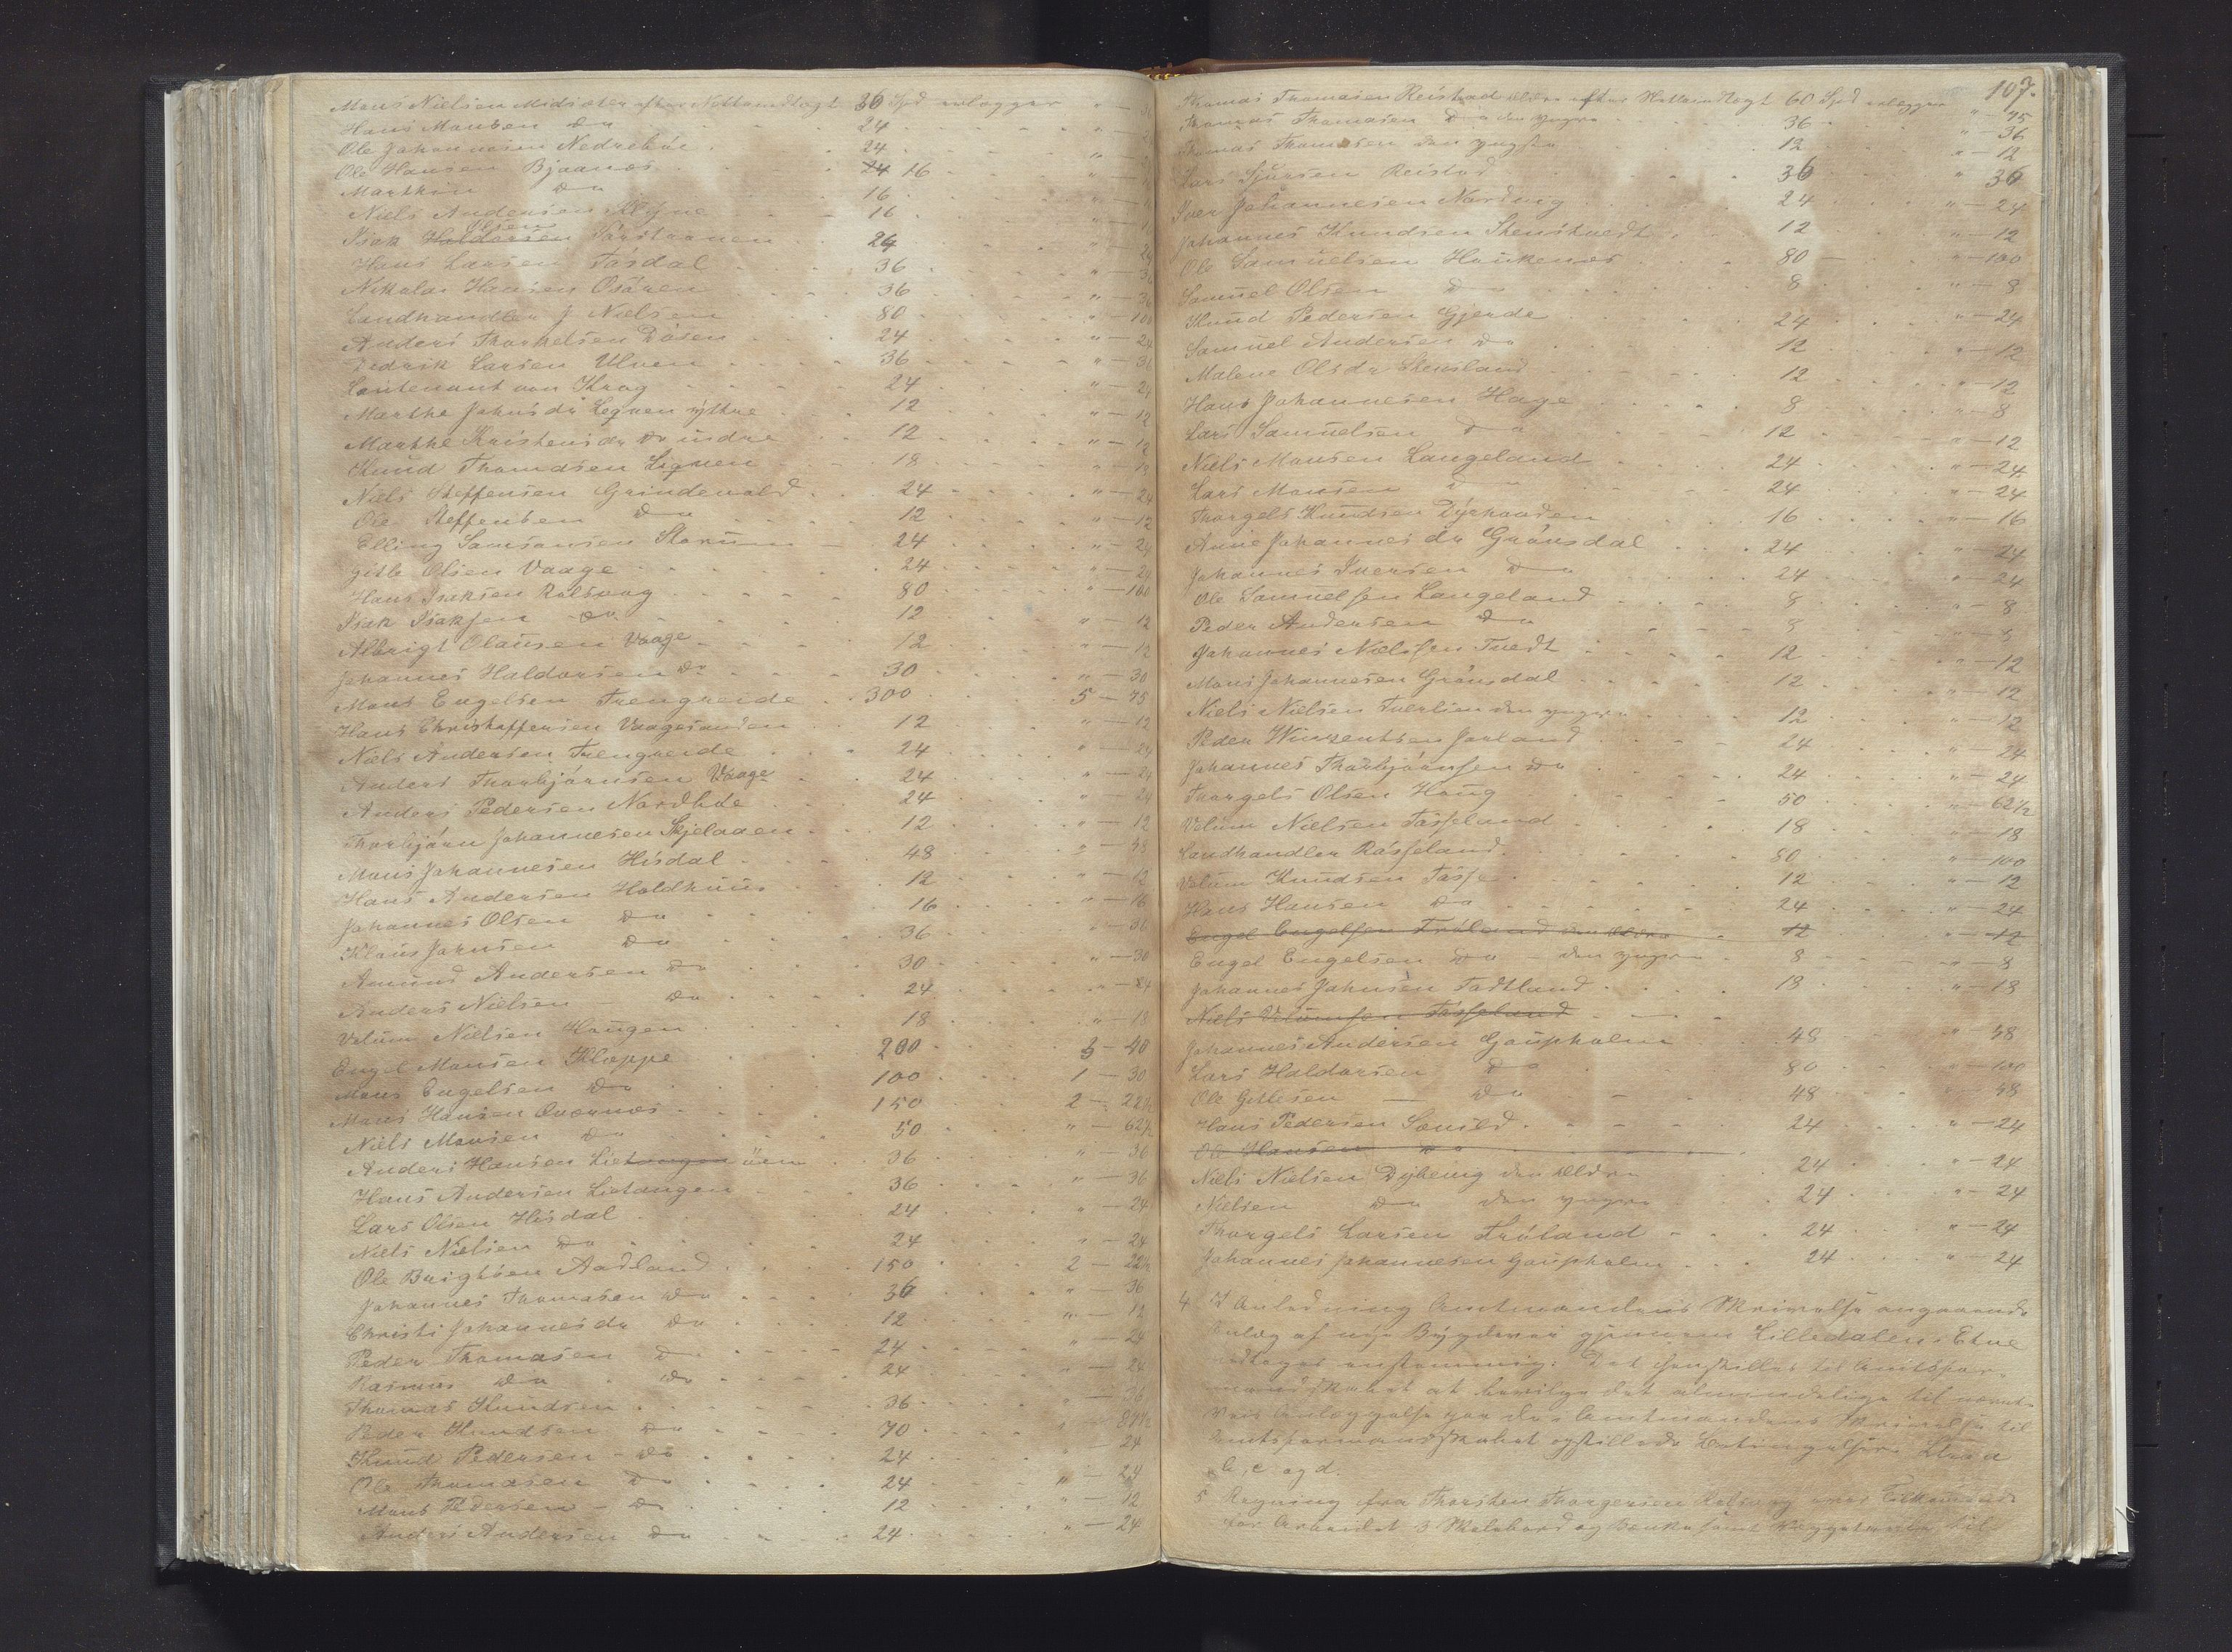 Mons Nielsen Midsæter efter Nettoindtægt 36 Spd erlægger " — 36
Hans Monsen Do 24 " — 24
Ole Johannesen Nedrebøe 24 " — 24
Ole Hansen Bjaanæs 24 16 " —
Marthin Do 16 " —
Niels Andersen Klyve 16 " —
Isak Haldorsen Olsen 24 " — 24
Hans Larsen Tøsdal 36 " — 36
Nikolai Hansen Osøren 36 " — 36
Landhandler J Nielsen 80 " — 100
Anders Thorkelsen Døsen 24 " — 24
Didrik Larsen Ulven 36 " — 36
Løitenant von Krog 24 " — 24
Marthe Johnsdr Legnen ÿttre 12 " — 12
Marthe Kristensdr Do indre 12 " — 12
Knud Thomasen Lignen 18 " — 18
Niels Steffensen Grindevold 24 " — 24
Ole Steffensen Do 12 " — 12
Elling Samsonsen Storum 24 " — 24
Gitle Olsen Vaage 24 " — 24
Hans Isaksen Rolsvaag 80 " — 100
Isak Isaksen Do 12 " — 12
Albrigt Olausen Vaage 12 " — 12
Johannes Haldorsen Do 30 " — 30
Mons Engelsen Trengreide 300 5 — 75
Hans Christoffersen Vaagesanden 12 " — 12
Niels Andersen Trengreide 24 " — 24
Anders Thorbjørnsen Vaage 24 " — 24
Anders Pedersen Nordlide 24 " — 24
Thorbjørn Johannesen Skjelaaen 12 " — 12
Mons Johannesen Hisdal 48 " — 48
Hans Andersen Holdhuus 12 " — 12
Johannes Olsen Do 16 " — 16
Klaus Johnsen Do 36 " — 36
Amund Andersen Do 30 " — 30
Anders Nielsen — Do 24 " — 24
Velum Nielsen Haugen 18 " — 18
Engel Monsen Kleppe 200 3 — 40
Mons Engelsen Do 100 1 — 30
Mons Hansen Qværnæs 150 2 — 22½
Niels Monsen Do 50 " — 62½
Anders Hansen Lietangen 36 " — 36
Hans Andersen Lietangen 36 " — 36
Lars Olsen Hisdal 24 " — 24
Niels Nielsen Do 24 " — 24
Ole Brigtsen Aadland 150 2 — 22½
Johannes Thomasen Do 36 " — 36
Christi Johannesdr Do 12 " — 12
Peder Thomasen Do 24 " — 24
Rasmus Do Do 24 " — 24
Thomas Knudsen 36 " — 36
Peder Knudsen Do 70 " — 87½
Knud Pedersen - Do 24 " — 24
Ole Thomasen Do 24 " — 24
Mons Pedersen - Do 12 " — 12
Anders Andersen Do 24 " — 24
107.
Thomas Thomasen Reistad ældre efter Nettoindtægt 60 Spd erlægger " — 75
Thomas Thomasen Do den yngre 36 " — 36
Thomas Thomasen den yngste 12 " — 12
Lars Sjursen Reistad 36 " — 36
Iver Johannesen Nordvig 24 " — 24
Johannes Knudsen Stenstvedt 12 " — 12
Ole Samuelsen Haukenæs 80 — " — 100
Samuel Olsen Do 8 " — 8
Knud Pedersen Gjerde 24 " — 24
Samuel Andersen Do 12 " — 12
Malene Olsdr Skeisland 12 " — 12
Hans Johannesen Hage 8 " — 8
Lars Samuelsen Do 12 " — 12
Niels Monsen Langeland 24 " — 24
Lars Monsen Do 24 " — 24
Thorgels Knudsen Dyrhovden 16 " — 16
Anne Johannesdr Grønsdal 24 " — 24
Johannes Iversen Do 24 " — 24
Ole Samuelsen Langeland 8 " — 8
Peder Andersen Do 8 " — 8
Johannes Nielssen Tvedt 12 " — 12
Mons Johannesen Grønsdal 12 " — 12
Niels Nielsen Tverlien den yngre 12 " — 12
Peder Winzentsen Jarland 24 " — 24
Johannes Thorbjørnsen Do 24 " — 24
Thorgels Olsen Haug 50 " — 62½
Velum Nielsen Tøsseland 18 " — 18
Landhandler Røsseland 80 " — 100
Velum Knudsen Tøsse 12 " — 12
Hans Hansen Do 24 " — 24
Engel Engelsen Frøland den ældre 12 " — 12
Engel Engelsen Do - den yngre 8 " — 8
Johannes Johnsen Tadtland 18 " — 18
Niels Velumsen Tøsseland
Johannes Andersen Gaupholm 48 " — 48
Lars Haldorsen Do 80 " — 100
Ole Gitlesen — Do 48 " — 48
Hans Pedersen Sævild 24 " — 24
Ole Hansen Do
Niels Nielsen Dyheug den ældre 24 " — 24
Nielsen Do den yngre 24 " — 24
Thorgels Larsen Frøland 24 " — 24
Johannes Johannesen Gaupholm 24 " — 24
4 I Anledning Amtmandens Skrivelse angaaende
Anlæg af nye Bygdevei gjennem Lilledalen i Etne
vedtoges enstemmig: Det henstilles til Amtsfor-
mandskabet at bevilge det almindelige til nævnte
Veis Anlæggelse paa de i Amtmandens Skrivelse til
Amtsformandskabet opstillede Betingelser Litra a
b, c og d.
5 Regning fra Thorsten Thorgersen Rolsvog
for Arbeidet 3 Skolebord og Bænke samt til